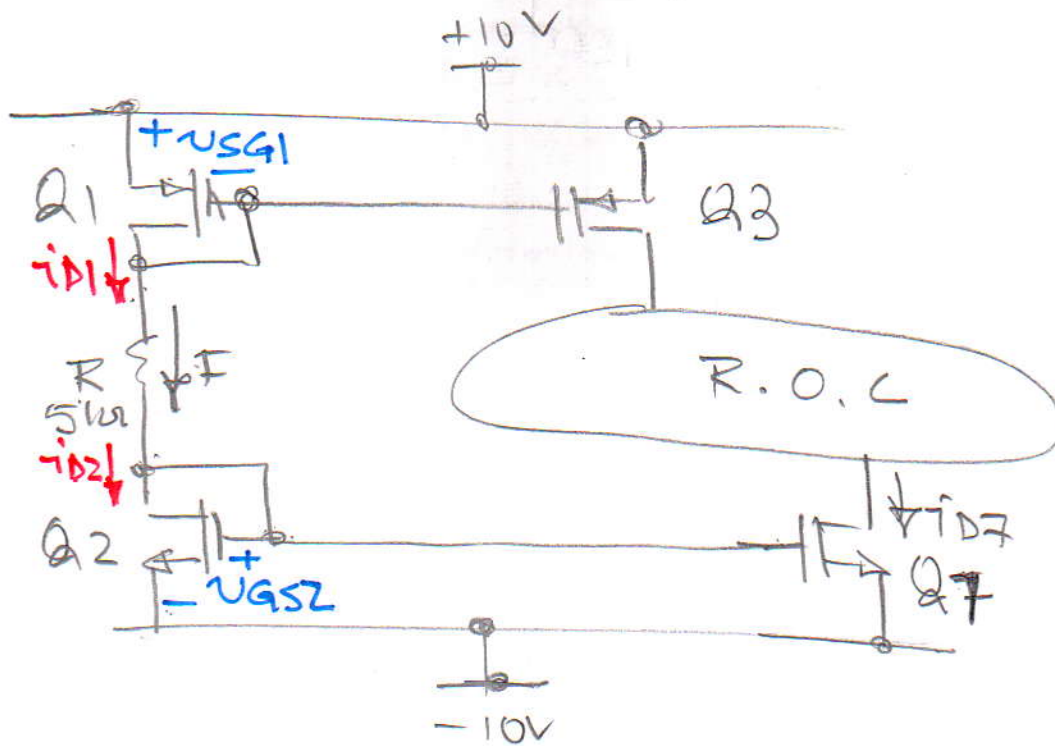 +10V
+ vSG1 -
Q1
Q3
iD1
R
5kΩ
I
R.O.C
iD2
iD7
Q2
+
- vGS2
Q7
-10V